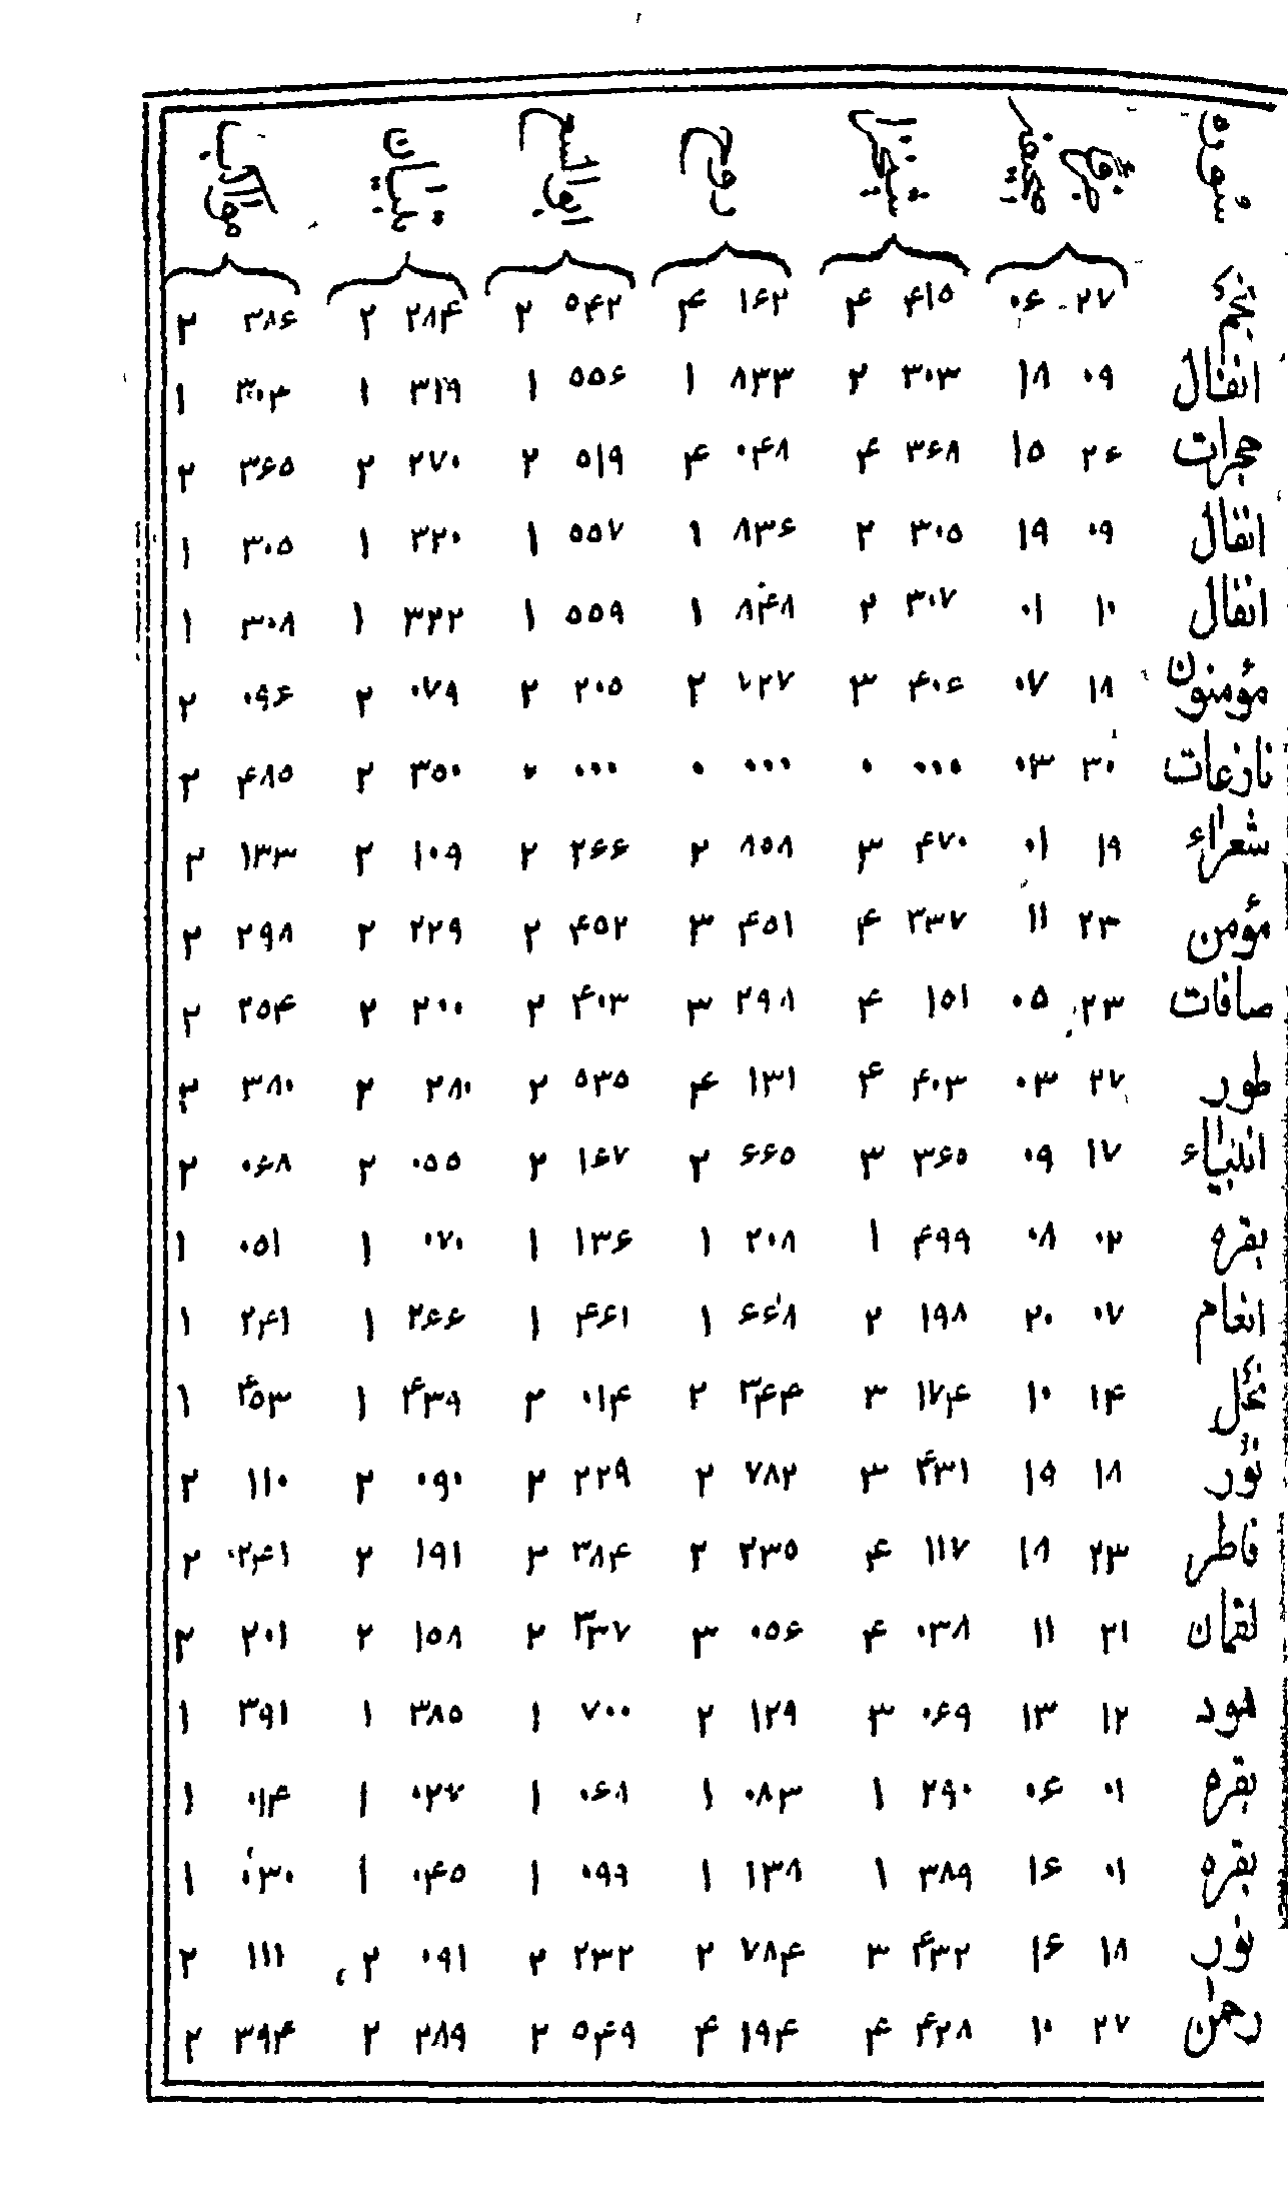 سورة جزء صفحة شيخ روح ابو السعود تبيان مواكب
نجم ۲۷ ۰۶ ۴۱۵ ۴ ۱۶۲ ۴ ۵۴۲ ۲ ۲۸۴ ۲ ۳۸۶ ۲
انفال ۰۹ ۱۸ ۳۰۳ ۲ ۸۳۳ ۱ ۵۵۶ ۱ ۳۱۹ ۱ ۳۰۳ ۱
حجرات ۲۶ ۱۵ ۳۶۸ ۴ ۰۴۸ ۴ ۵۱۹ ۲ ۲۷۰ ۲ ۳۶۵ ۲
انفال ۰۹ ۱۹ ۳۰۵ ۲ ۸۳۶ ۱ ۵۵۷ ۱ ۳۲۰ ۱ ۳۰۵ ۱
انفال ۱۰ ۰۱ ۳۰۷ ۲ ۸۴۸ ۱ ۵۵۹ ۱ ۳۲۲ ۱ ۳۰۸ ۱
مؤمنون ۱۸ ۰۷ ۴۰۶ ۳ ۷۲۷ ۲ ۲۰۵ ۲ ۰۷۹ ۲ ۰۹۶ ۲
نازعات ۳۰ ۰۳ ۰۰۰ ۰ ۰۰۰ ۰ ۰۰۰ ۰ ۳۵۰ ۲ ۴۸۵ ۲
شعراء ۱۹ ۰۱ ۴۷۰ ۳ ۸۵۸ ۲ ۲۶۶ ۲ ۱۰۹ ۲ ۱۳۳ ۲
مؤمن ۲۳ ۱۱ ۳۳۷ ۴ ۴۵۱ ۳ ۴۵۲ ۲ ۲۲۹ ۲ ۲۹۸ ۲
صافات ۲۳ ۰۵ ۱۵۱ ۴ ۲۹۸ ۳ ۴۰۳ ۲ ۲۰۰ ۲ ۲۵۴ ۲
طور ۲۷ ۰۳ ۴۰۳ ۴ ۱۳۱ ۴ ۵۳۵ ۲ ۲۸۰ ۲ ۳۸۰ ۲
انبياء ۱۷ ۰۹ ۳۶۵ ۳ ۶۶۵ ۲ ۱۶۷ ۲ ۰۵۵ ۲ ۰۶۸ ۲
بقره ۰۲ ۰۸ ۴۹۹ ۱ ۲۰۸ ۱ ۱۳۶ ۱ ۰۷۰ ۱ ۰۵۱ ۱
انعام ۰۷ ۲۰ ۱۹۸ ۲ ۶۶۸ ۱ ۴۶۱ ۱ ۲۶۶ ۱ ۲۴۱ ۱
نحل ۱۴ ۱۰ ۱۷۴ ۳ ۳۴۴ ۲ ۰۱۴ ۲ ۴۳۹ ۱ ۴۵۳ ۱
نور ۱۸ ۱۹ ۴۳۱ ۳ ۷۸۲ ۲ ۲۲۹ ۲ ۰۹۰ ۲ ۱۱۰ ۲
فاطر ۲۳ ۱۸ ۱۱۷ ۴ ۲۳۵ ۲ ۳۸۴ ۲ ۱۹۱ ۲ ۲۴۱ ۲
لقمان ۲۱ ۱۱ ۰۳۸ ۴ ۰۵۶ ۳ ۳۳۷ ۲ ۱۵۸ ۲ ۲۰۱ ۲
هود ۱۲ ۱۳ ۰۶۹ ۳ ۱۲۹ ۲ ۷۰۰ ۱ ۳۸۵ ۱ ۳۹۱ ۱
بقره ۰۱ ۰۶ ۲۹۰ ۱ ۰۸۳ ۱ ۰۶۸ ۱ ۰۲۷ ۱ ۰۱۴ ۱
بقره ۰۱ ۱۶ ۳۸۹ ۱ ۱۳۸ ۱ ۰۹۹ ۱ ۰۴۵ ۱ ۰۳۰ ۱
نور ۱۸ ۱۶ ۴۳۲ ۳ ۷۸۴ ۲ ۲۳۲ ۲ ۰۹۱ ۲ ۱۱۱ ۲
رحمن ۲۷ ۱۰ ۴۲۸ ۴ ۱۹۴ ۴ ۵۴۹ ۲ ۲۸۹ ۲ ۳۹۴ ۲